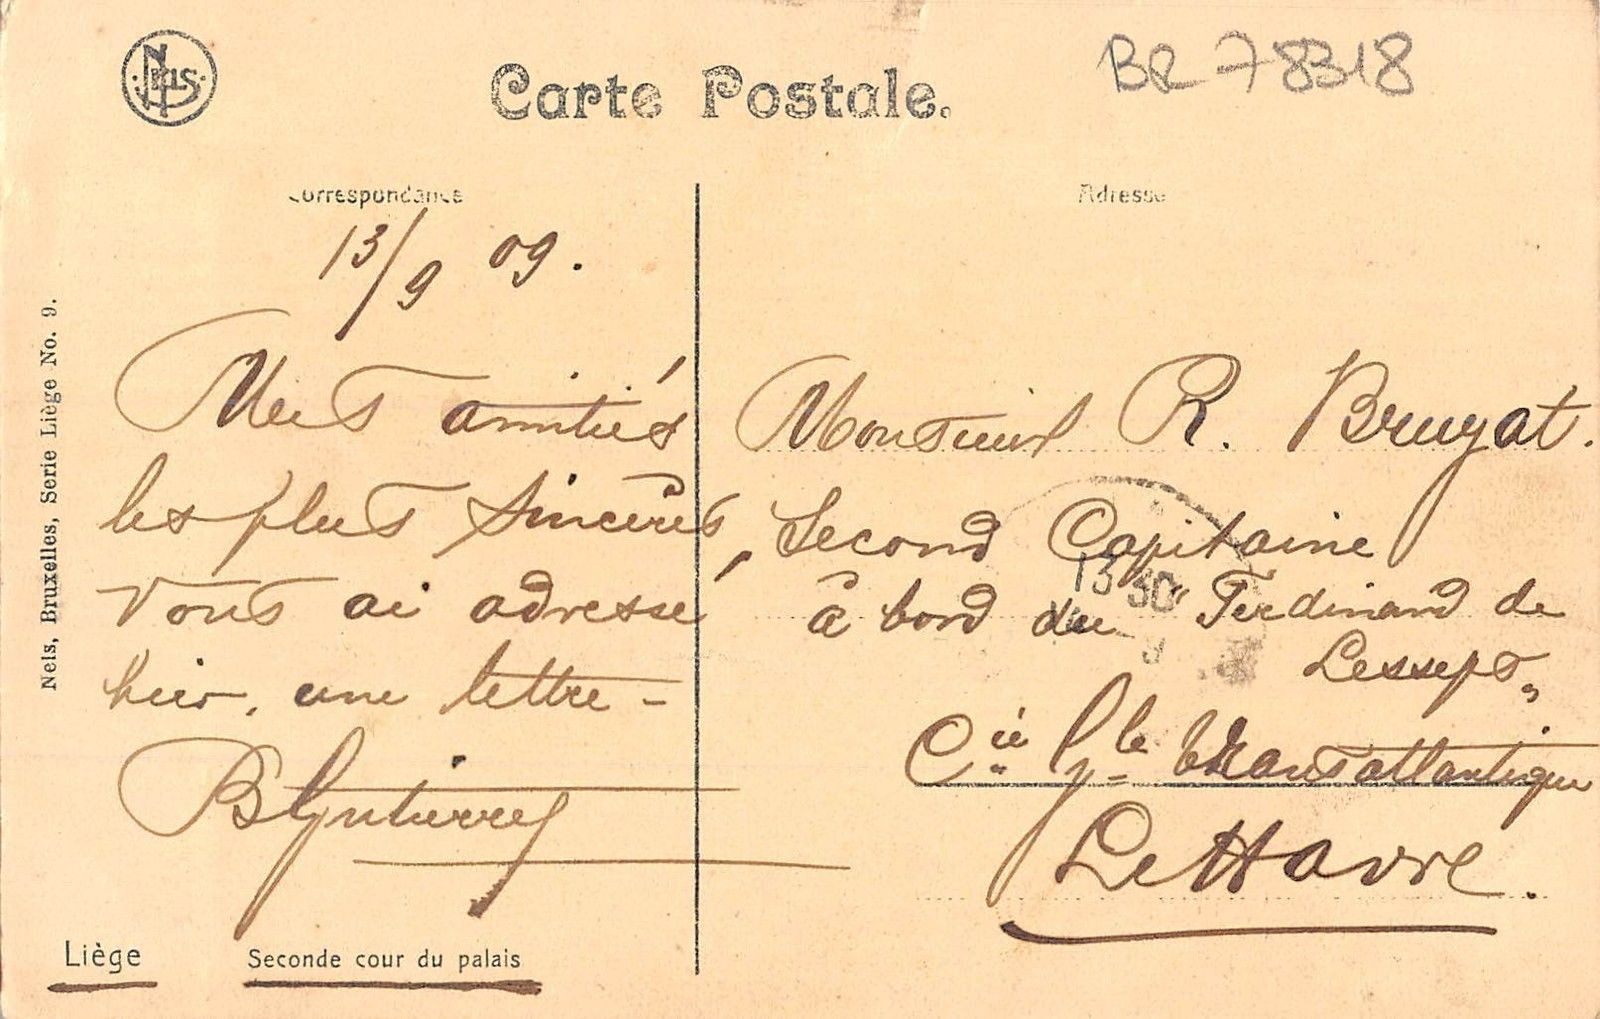 Nels
Carte Postale.
BR 78318
Correspondance
13/9 09.
Mes amitiés
les plus sincères,
Vous ai adressé
hier, une lettre -
B Gutierrez
Adresse
Monsieur R. Bruyat.
Second Capitaine
à bord du "Ferdinand de
Lesseps"
Cie Gle transatlantique
Le Havre.
13 30
9
Nels, Bruxelles, Serie Liège No. 9.
Liège Seconde cour du palais